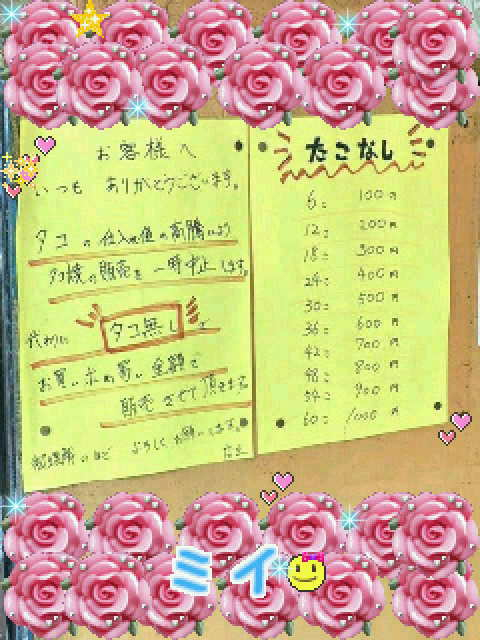 お客様へ
いつも ありがとうございます。
タコの仕入れ値の高騰により
タコ焼の販売を一時中止します。
代わりに タコ無しを
お買い求め易い金額で
販売させて頂きます
よろしくお願いします。
店主
たこなし
6コ 100円
12コ 200円
18コ 300円
24コ 400円
30コ 500円
36コ 600円
42コ 700円
48コ 800円
54コ 900円
60コ 1000円
ミイ